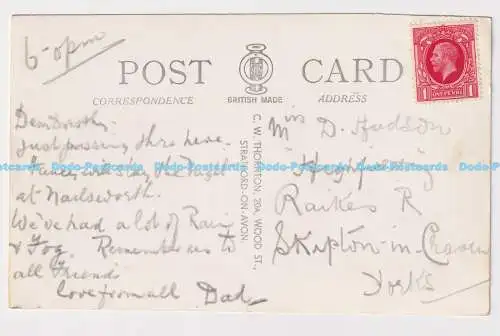 6-0pm
POST CARD
CORRESPONDENCE
BRITISH MADE
ADDRESS
1 ONE PENNY 1
Dear Dorothy
Just passing thro here.
will stay the night
at Nailsworth.
We've had a lot of Rain
& Fog. Remember us to
all Friends
Love from all Dad
C. W. THORNTON, 20A, WOOD ST.,
STRATFORD-ON-AVON.
Miss D. Hudson
Raikes R
Skipton-in-Craven
Yorks
Dodo-Postcards Dodo-Postcards Dodo-Postcards Dodo-Postcards